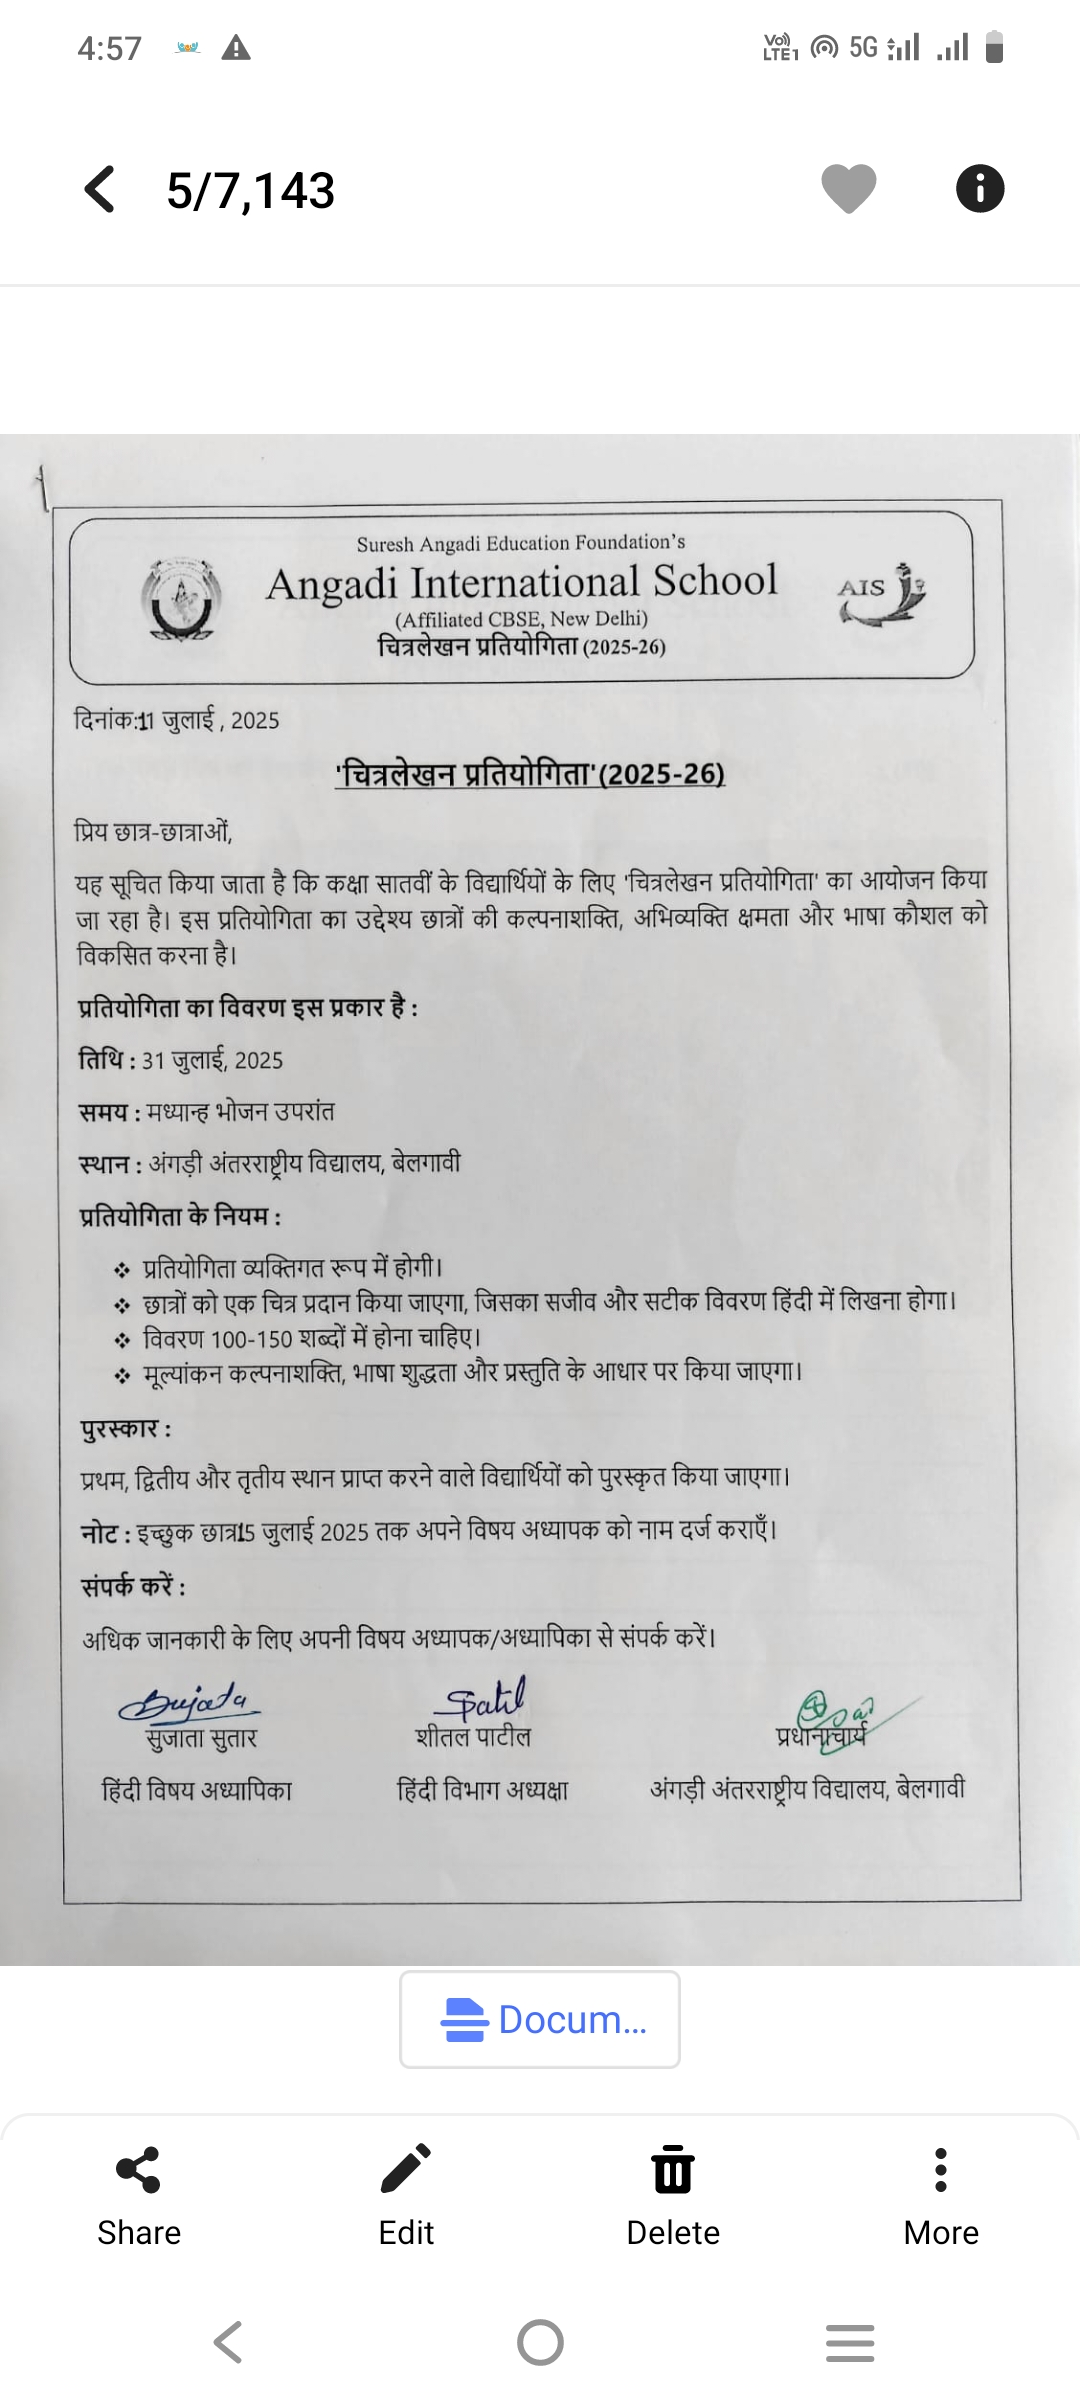 4:57 VoLTE1 5G
5/7,143
Suresh Angadi Education Foundation's
Angadi International School
AIS
(Affiliated CBSE, New Delhi)
चित्रलेखन प्रतियोगिता (2025-26)
दिनांक:11 जुलाई , 2025
'चित्रलेखन प्रतियोगिता'(2025-26)
प्रिय छात्र-छात्राओं,
यह सूचित किया जाता है कि कक्षा सातवीं के विद्यार्थियों के लिए 'चित्रलेखन प्रतियोगिता' का आयोजन किया
जा रहा है। इस प्रतियोगिता का उद्देश्य छात्रों की कल्पनाशक्ति, अभिव्यक्ति क्षमता और भाषा कौशल को
विकसित करना है।
प्रतियोगिता का विवरण इस प्रकार है :
तिथि : 31 जुलाई, 2025
समय : मध्यान्ह भोजन उपरांत
स्थान : अंगड़ी अंतरराष्ट्रीय विद्यालय, बेलगावी
प्रतियोगिता के नियम :
❖ प्रतियोगिता व्यक्तिगत रूप में होगी।
❖ छात्रों को एक चित्र प्रदान किया जाएगा, जिसका सजीव और सटीक विवरण हिंदी में लिखना होगा।
❖ विवरण 100-150 शब्दों में होना चाहिए।
❖ मूल्यांकन कल्पनाशक्ति, भाषा शुद्धता और प्रस्तुति के आधार पर किया जाएगा।
पुरस्कार :
प्रथम, द्वितीय और तृतीय स्थान प्राप्त करने वाले विद्यार्थियों को पुरस्कृत किया जाएगा।
नोट : इच्छुक छात्र15 जुलाई 2025 तक अपने विषय अध्यापक को नाम दर्ज कराएँ।
संपर्क करें :
अधिक जानकारी के लिए अपनी विषय अध्यापक/अध्यापिका से संपर्क करें।
Sujata Spatil
सुजाता सुतार शीतल पाटील प्रधानाचार्य
हिंदी विषय अध्यापिका हिंदी विभाग अध्यक्षा अंगड़ी अंतरराष्ट्रीय विद्यालय, बेलगावी
Docum...
Share Edit Delete More